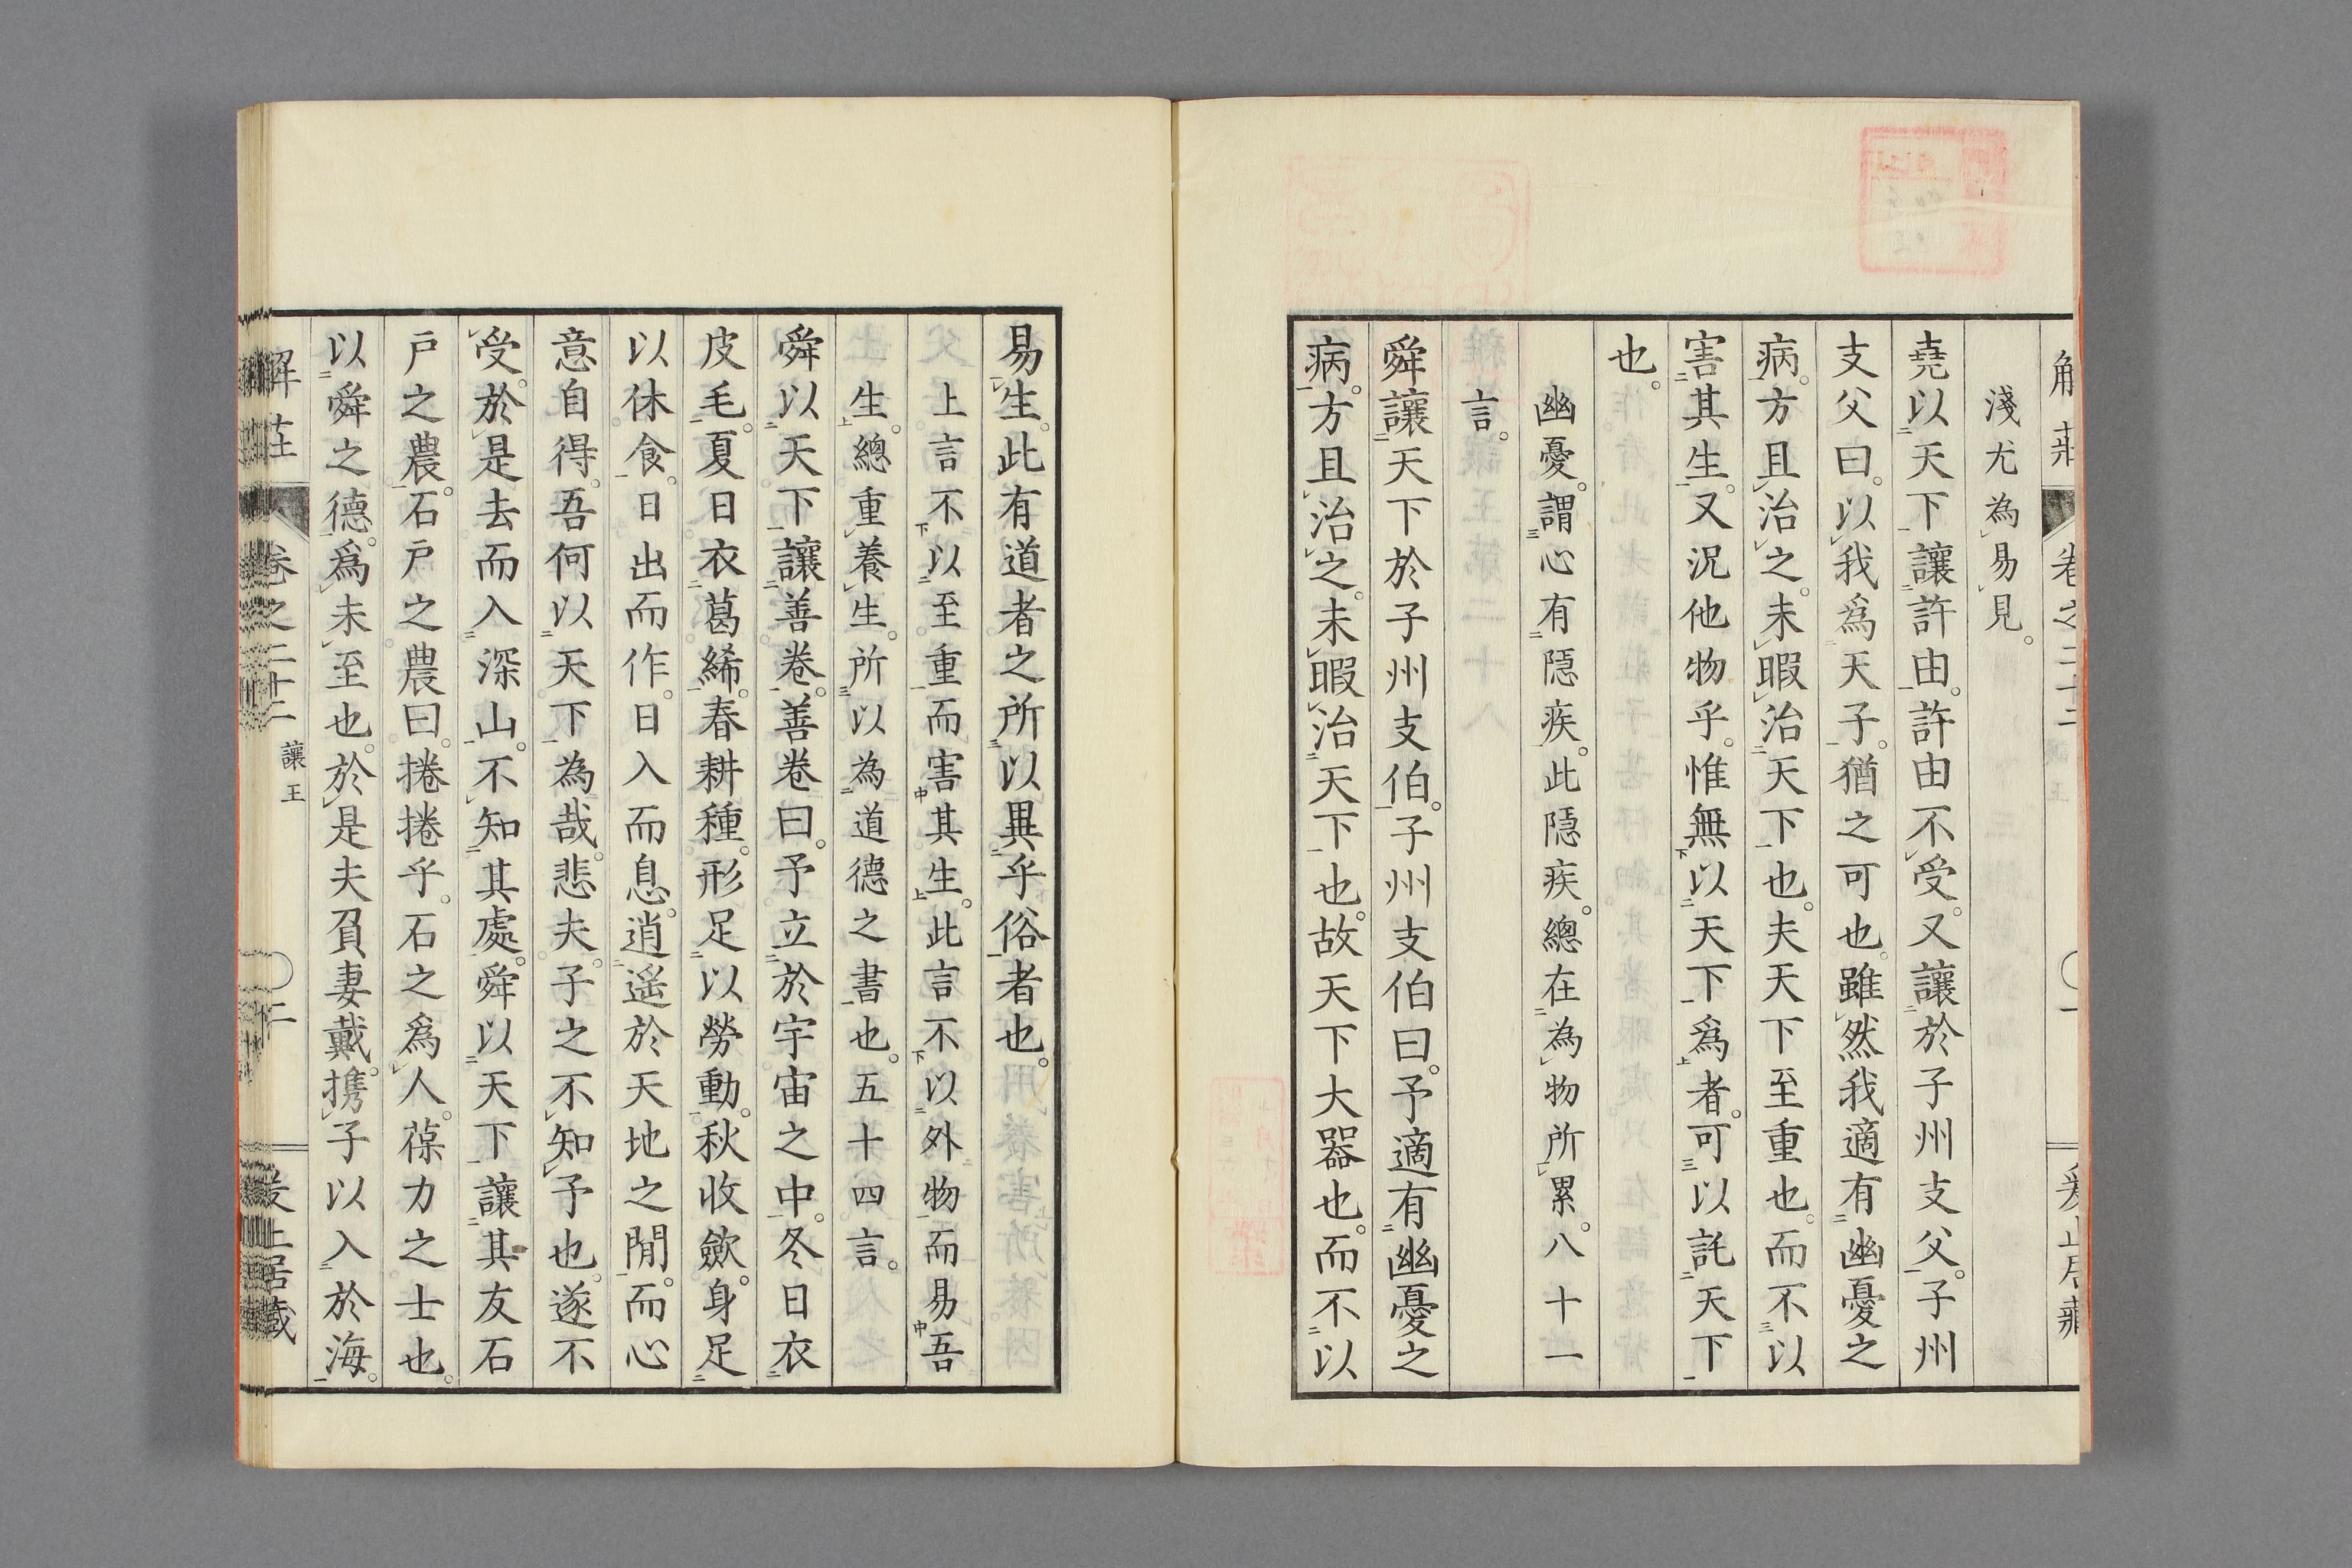 淺尤為易見。
堯以天下讓許由。許由不受。又讓於子州支父。子州
支父曰。以我爲天子。猶之可也。雖然我適有幽憂之
病。方且治之。未暇治天下也。夫天下至重也。而不以
害其生。又況他物乎。惟無以天下爲者。可以託天下
也。
幽憂。謂心有隱疾。此隱疾。總在為物所累。八十一
言。
舜讓天下於子州支伯。子州支伯曰。予適有幽憂之
病。方且治之。未暇治天下也。故天下大器也。而不以
易生。此有道者之所以異乎俗者也。
上言不以至重而害其生。此言不以外物而易吾
生。總重養生。所以為道德之書也。五十四言。
舜以天下讓善卷。善卷曰。予立於宇宙之中。冬日衣
皮毛。夏日衣葛絺。春耕種。形足以勞動。秋收歛。身足
以休食。日出而作。日入而息。逍遙於天地之閒。而心
意自得。吾何以天下為哉。悲夫。子之不知予也。遂不
受。於是去而入深山。不知其處。舜以天下讓其友石
戸之農。石戸之農曰。捲捲乎。石之爲人。葆力之士也。
以舜之德。爲未至也。於是夫負妻戴。携子以入於海。
解莊 卷之二十二 讓王 〇二